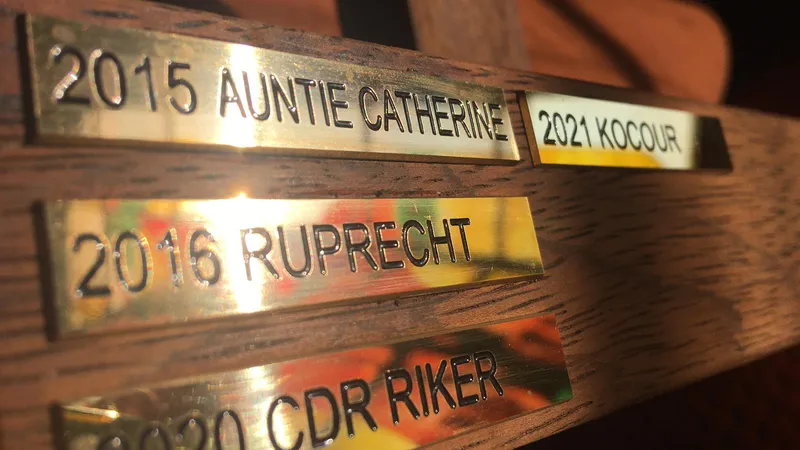 2015 AUNTIE CATHERINE
2021 KOCOUR
2016 RUPRECHT
2020 CDR RIKER